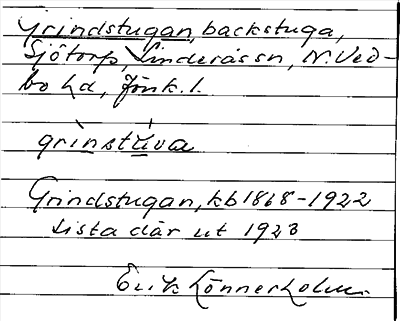 Grindstugan, backstuga,
Sjötorp, Linderåssn, N. Ved-
bo hd, Jönk. l.
grìnstúva
Grindstugan, kb 1868-1922
Sista där ut 1923
Erik Lönnerholm